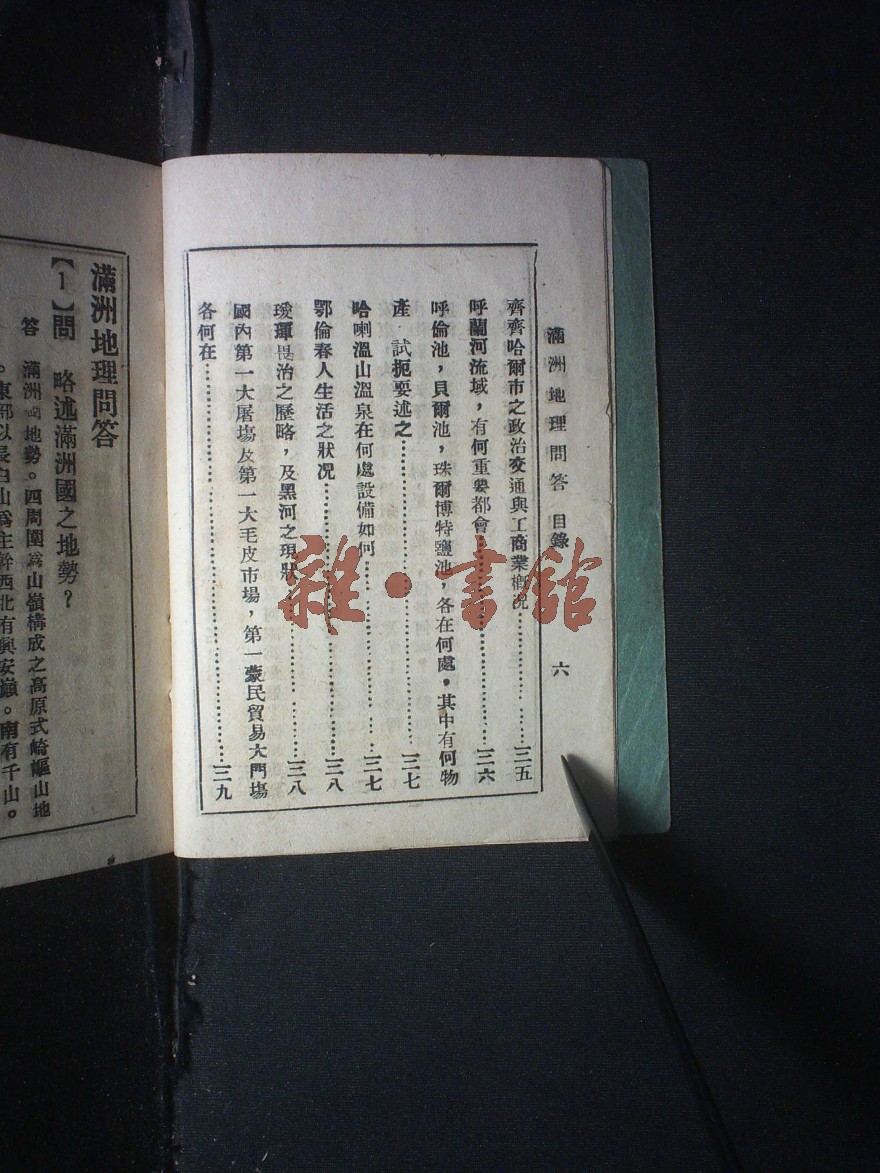 滿洲地理問答 目錄 六
齊齊哈爾市之政治交通與工商業槪況…………三五
呼蘭河流域，有何重要都會…………三六
呼倫池，貝爾池，珠爾博特鹽池，各在何處，其中有何物
產 試扼要述之…………三七
哈喇溫山溫泉在何處設備如何…………三七
鄂倫春人生活之狀况…………三八
璦琿畏治之歷略，及黑河之現狀…………三八
國內第一大屠場及第一大毛皮市場，第一蒙民貿易大門場
各何在…………三九
雜·書館
滿洲地理問答
【1】問 略述滿洲國之地勢？
答 滿洲國地勢。四周圍爲山嶺構成之高原式崎嶇山地
。東部以長白山爲主幹西北有興安嶺。南有千山。